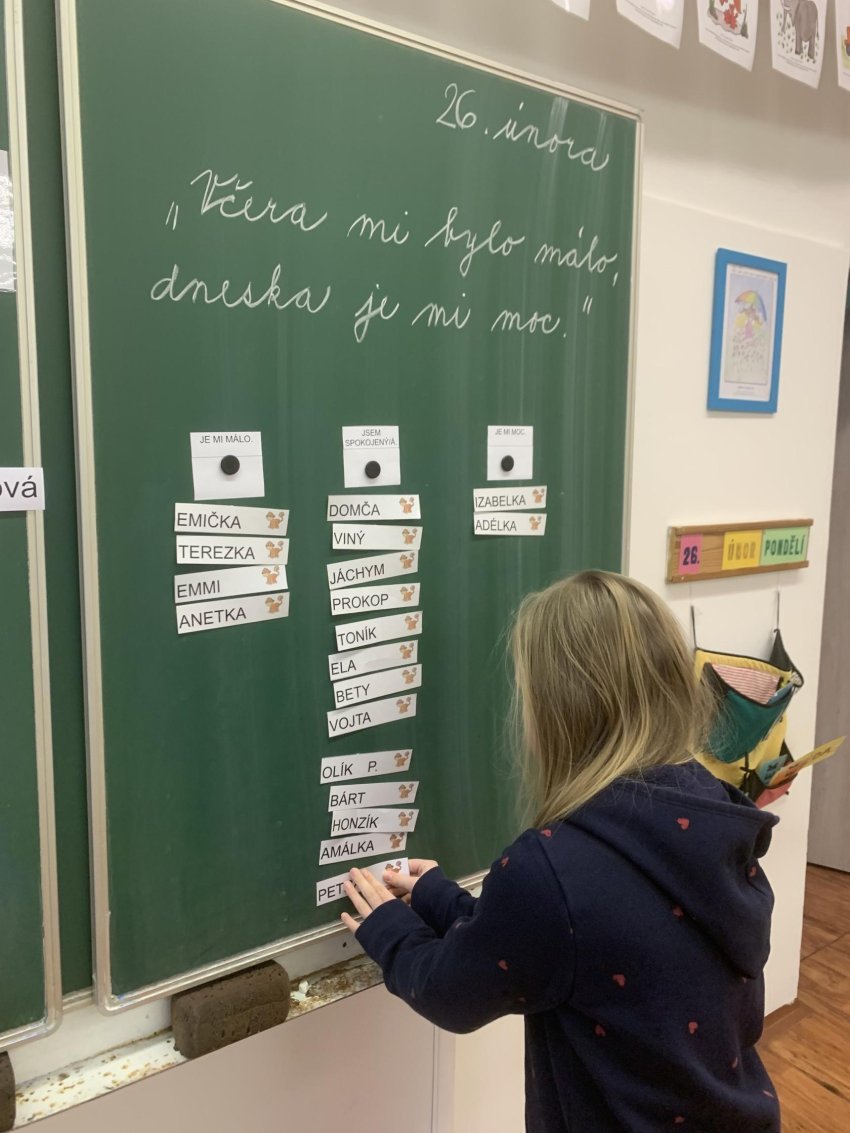 26. února
„Včera mi bylo málo,
dneska je mi moc."
JE MI MÁLO.
EMIČKA
TEREZKA
EMMI
ANETKA
JSEM
SPOKOJENÝ/Á.
DOMČA
VINÝ
JÁCHYM
PROKOP
TONÍK
ELA
BETY
VOJTA
OLÍK P.
BÁRT
HONZÍK
AMÁLKA
PET
JE MI MOC.
IZABELKA
ADÉLKA
ová
26. ÚNOR PONDĚLÍ